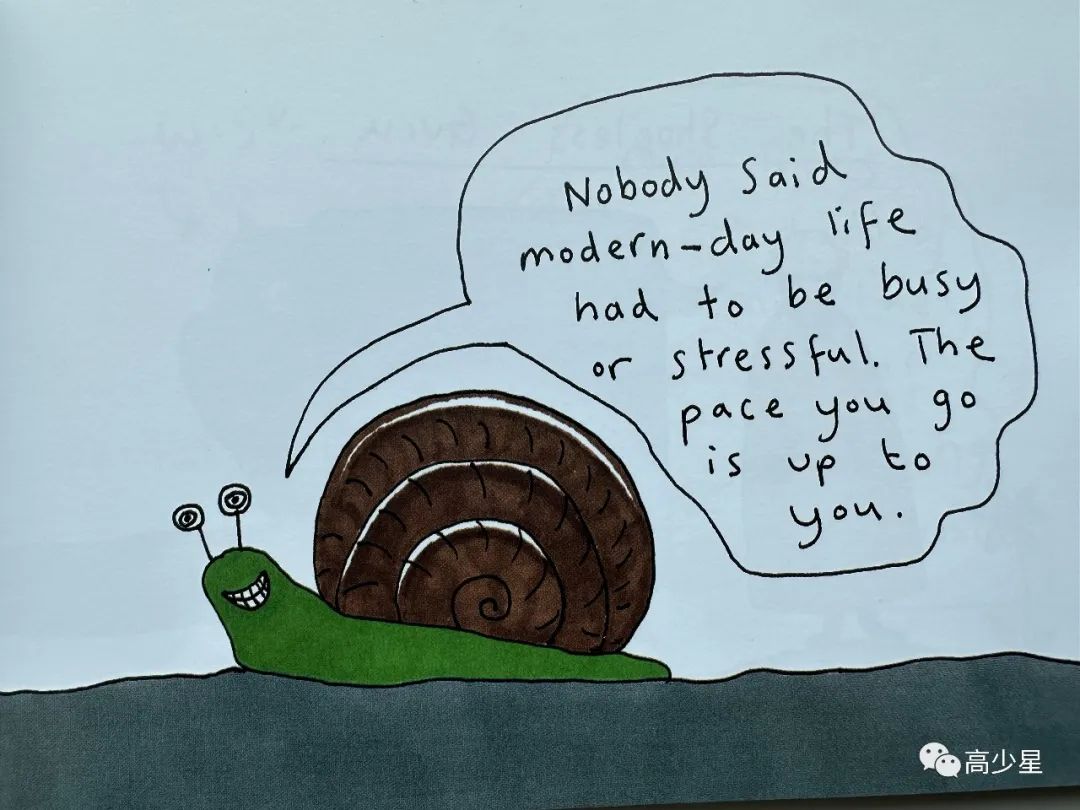 Nobody Said
modern-day life
had to be busy
or stressful. The
pace you go
is up to
you.
高少星